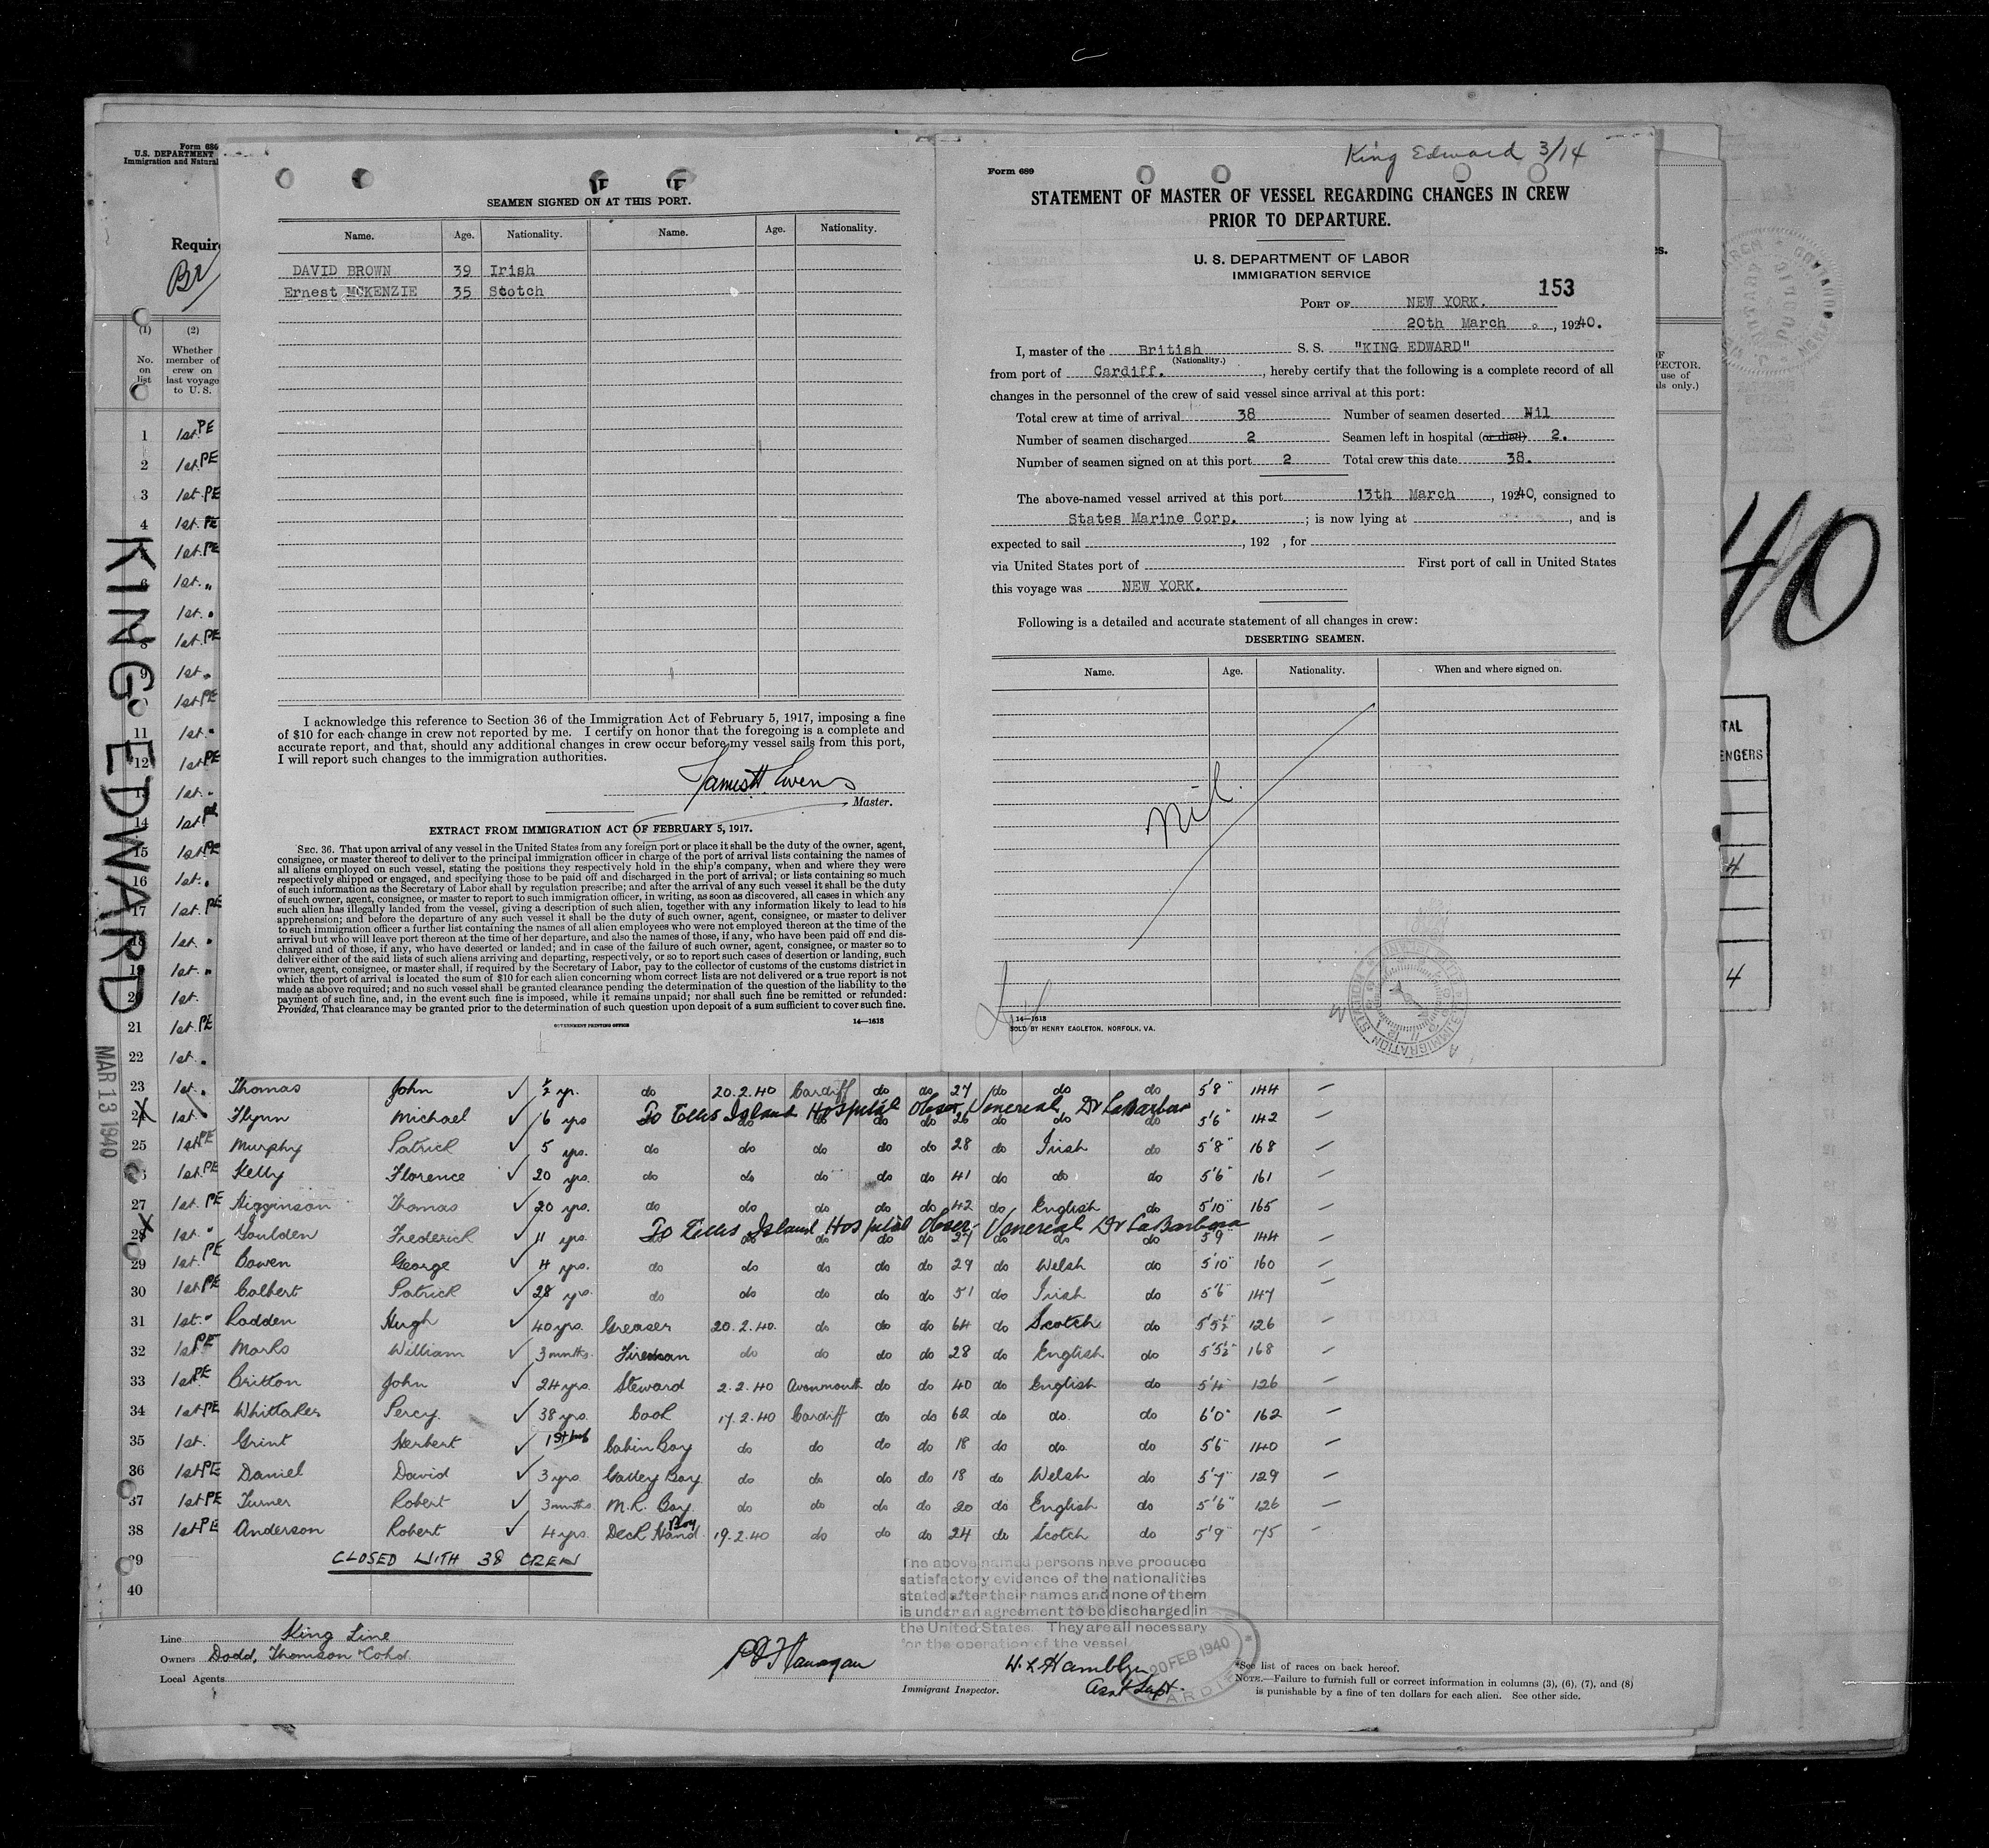 King Edward 3/14
Form 689
U.S. DEPARTMENT
Immigration and Natural
Requir
Br
(1) (2)
No. on list
Whether member of crew on last voyage to U. S.
SEAMEN SIGNED ON AT THIS PORT.
Name. Age. Nationality. Name. Age. Nationality.
DAVID BROWN 39 Irish
Ernest MCKENZIE 35 Scotch
I acknowledge this reference to Section 36 of the Immigration Act of February 5, 1917, imposing a fine
of $10 for each change in crew not reported by me. I certify on honor that the foregoing is a complete and
accurate report, and that, should any additional changes in crew occur before my vessel sails from this port,
I will report such changes to the immigration authorities.
Master.
EXTRACT FROM IMMIGRATION ACT OF FEBRUARY 5, 1917.
SEC. 36. That upon arrival of any vessel in the United States from any foreign port or place it shall be the duty of the owner, agent,
consignee, or master thereof to deliver to the principal immigration officer in charge of the port of arrival lists containing the names of
all aliens employed on such vessel, stating the positions they respectively hold in the ship's company, when and where they were
respectively shipped or engaged, and specifying those to be paid off and discharged in the port of arrival; or lists containing so much
of such information as the Secretary of Labor shall by regulation prescribe; and after the arrival of any such vessel it shall be the duty
of such owner, agent, consignee, or master to report to such immigration officer, in writing, as soon as discovered, all cases in which any
such alien has illegally landed from the vessel, giving a description of such alien, together with any information likely to lead to his
apprehension; and before the departure of any such vessel it shall be the duty of such owner, agent, consignee, or master to deliver
to such immigration officer a further list containing the names of all alien employees who were not employed thereon at the time of the
arrival but who will leave port thereon at the time of her departure, and also the names of those, if any, who have been paid off and dis-
charged and of those, if any, who have deserted or landed; and in case of the failure of such owner, agent, consignee, or master so to
deliver either of the said lists of such aliens arriving and departing, respectively, or so to report such cases of desertion or landing, such
owner, agent, consignee, or master shall, if required by the Secretary of Labor, pay to the collector of customs of the customs district in
which the port of arrival is located the sum of $10 for each alien concerning whom correct lists are not delivered or a true report is not
made as above required; and no such vessel shall be granted clearance pending the determination of the question of the liability to the
payment of such fine, and, in the event such fine is imposed, while it remains unpaid; nor shall such fine be remitted or refunded:
Provided, That clearance may be granted prior to the determination of such question upon deposit of a sum sufficient to cover such fine.
GOVERNMENT PRINTING OFFICE 14—1618
Form 689
STATEMENT OF MASTER OF VESSEL REGARDING CHANGES IN CREW
PRIOR TO DEPARTURE.
U. S. DEPARTMENT OF LABOR
IMMIGRATION SERVICE
153
PORT OF NEW YORK.
20th March , 19240.
I, master of the British S. S. "KING EDWARD"
(Nationality.)
from port of Cardiff. , hereby certify that the following is a complete record of all
changes in the personnel of the crew of said vessel since arrival at this port:
Total crew at time of arrival 38 Number of seamen deserted Nil
Number of seamen discharged 2 Seamen left in hospital (or died) 2.
Number of seamen signed on at this port 2 Total crew this date 38.
The above-named vessel arrived at this port 13th March , 19240, consigned to
States Marine Corp. ; is now lying at , and is
expected to sail , 192 , for
via United States port of First port of call in United States
this voyage was NEW YORK.
Following is a detailed and accurate statement of all changes in crew:
DESERTING SEAMEN.
Name. Age. Nationality. When and where signed on.
Nil.
14—1618
SOLD BY HENRY EAGLETON, NORFOLK, VA.
IMMIGRATION STATION
40
TAL
ENGERS
4
4
KING EDWARD
MAR 13 1940
1 1st PE
2 1st PE
3 1st PE
4 1st PE
1st PE
6 1st "
1st "
8 1st PE
9 1st "
1st PE
11 1st "
12 1st PE
13 1st "
14 1st PE
15 1st PE
16 1st "
17 1st PE
18 1st "
19 1st "
2 1st
21 1st PE
22 1st "
23 1st " Thomas John ✓ ½ yr. do 20.2.40 Cardiff do do 27 do do do 5'8" 144 —
24 1st " Flynn Michael ✓ 6 yrs To Ellis Island Hospital Obser. Venereal, Dr LaBarbera do do do do 26 do do do 5'6" 142 —
25 1st PE Murphy Patrick ✓ 5 yrs. do do do do do 28 do Irish do 5'8" 168 —
1st PE Kelly Florence ✓ 20 yrs. do do do do do 41 do do do 5'6" 161 —
27 1st PE Higginson Thomas ✓ 20 yrs. do do do do do 42 do English do 5'10" 165 —
28 1st " Goulden Frederick ✓ 11 yrs. To Ellis Island Hospital Obser. Venereal Dr LaBarbera do do do do do do do do 5'9" 144 —
29 1st PE Bowen George ✓ 4 yrs. do do do do do 29 do Welsh do 5'10" 160 —
30 1st PE Colbert Patrick ✓ 28 yrs. do do do do do 51 do Irish do 5'6" 147 —
31 1st " Hugh ✓ 40 yrs. Greaser 20.2.40. do do do 64 do Scotch do 5'5½" 126 —
32 1st PE Marks William ✓ 3 mnths. Fireman do do do do 28 do English do 5'5½" 168 —
33 1st PE Britton John ✓ 24 yrs. Steward 2.2.40 Avonmouth do do 40 do English do 5'4" 126 —
34 1st PE Whittaker Percy. ✓ 38 yrs. Cook 17.2.40 Cardiff do do 62 do do. do 6'0" 162 —
35 1st. Grint Herbert ✓ 1st Cabin Boy do do do do 18 do do. do 5'6" 140 —
36 1st PE Daniel David ✓ 3 yrs. Galley Boy. do do do do 18 do Welsh do 5'7" 129 —
37 1st PE Turner Robert ✓ 3 mnths. M.R. Boy. do do do do 20 do English do 5'6" 126 —
38 1st PE Anderson Robert ✓ 4 yrs. Deck Hand Boy 19.2.40 do do do 24 do Scotch do 5'9" 175 —
39 CLOSED WITH 38 CREW
40
The above named persons have produced
satisfactory evidence of the nationalities
stated after their names and none of them
is under an agreement to be discharged in
the United States. They are all necessary
for the operation of the vessel
20 FEB 1940
CARDIFF
Line King Line
Owners Dodd, Thomson & Co Ltd
Local Agents
Immigrant Inspector.
Asst Supt.
*See list of races on back hereof.
NOTE.—Failure to furnish full or correct information in columns (3), (6), (7), and (8)
is punishable by a fine of ten dollars for each alien. See other side.